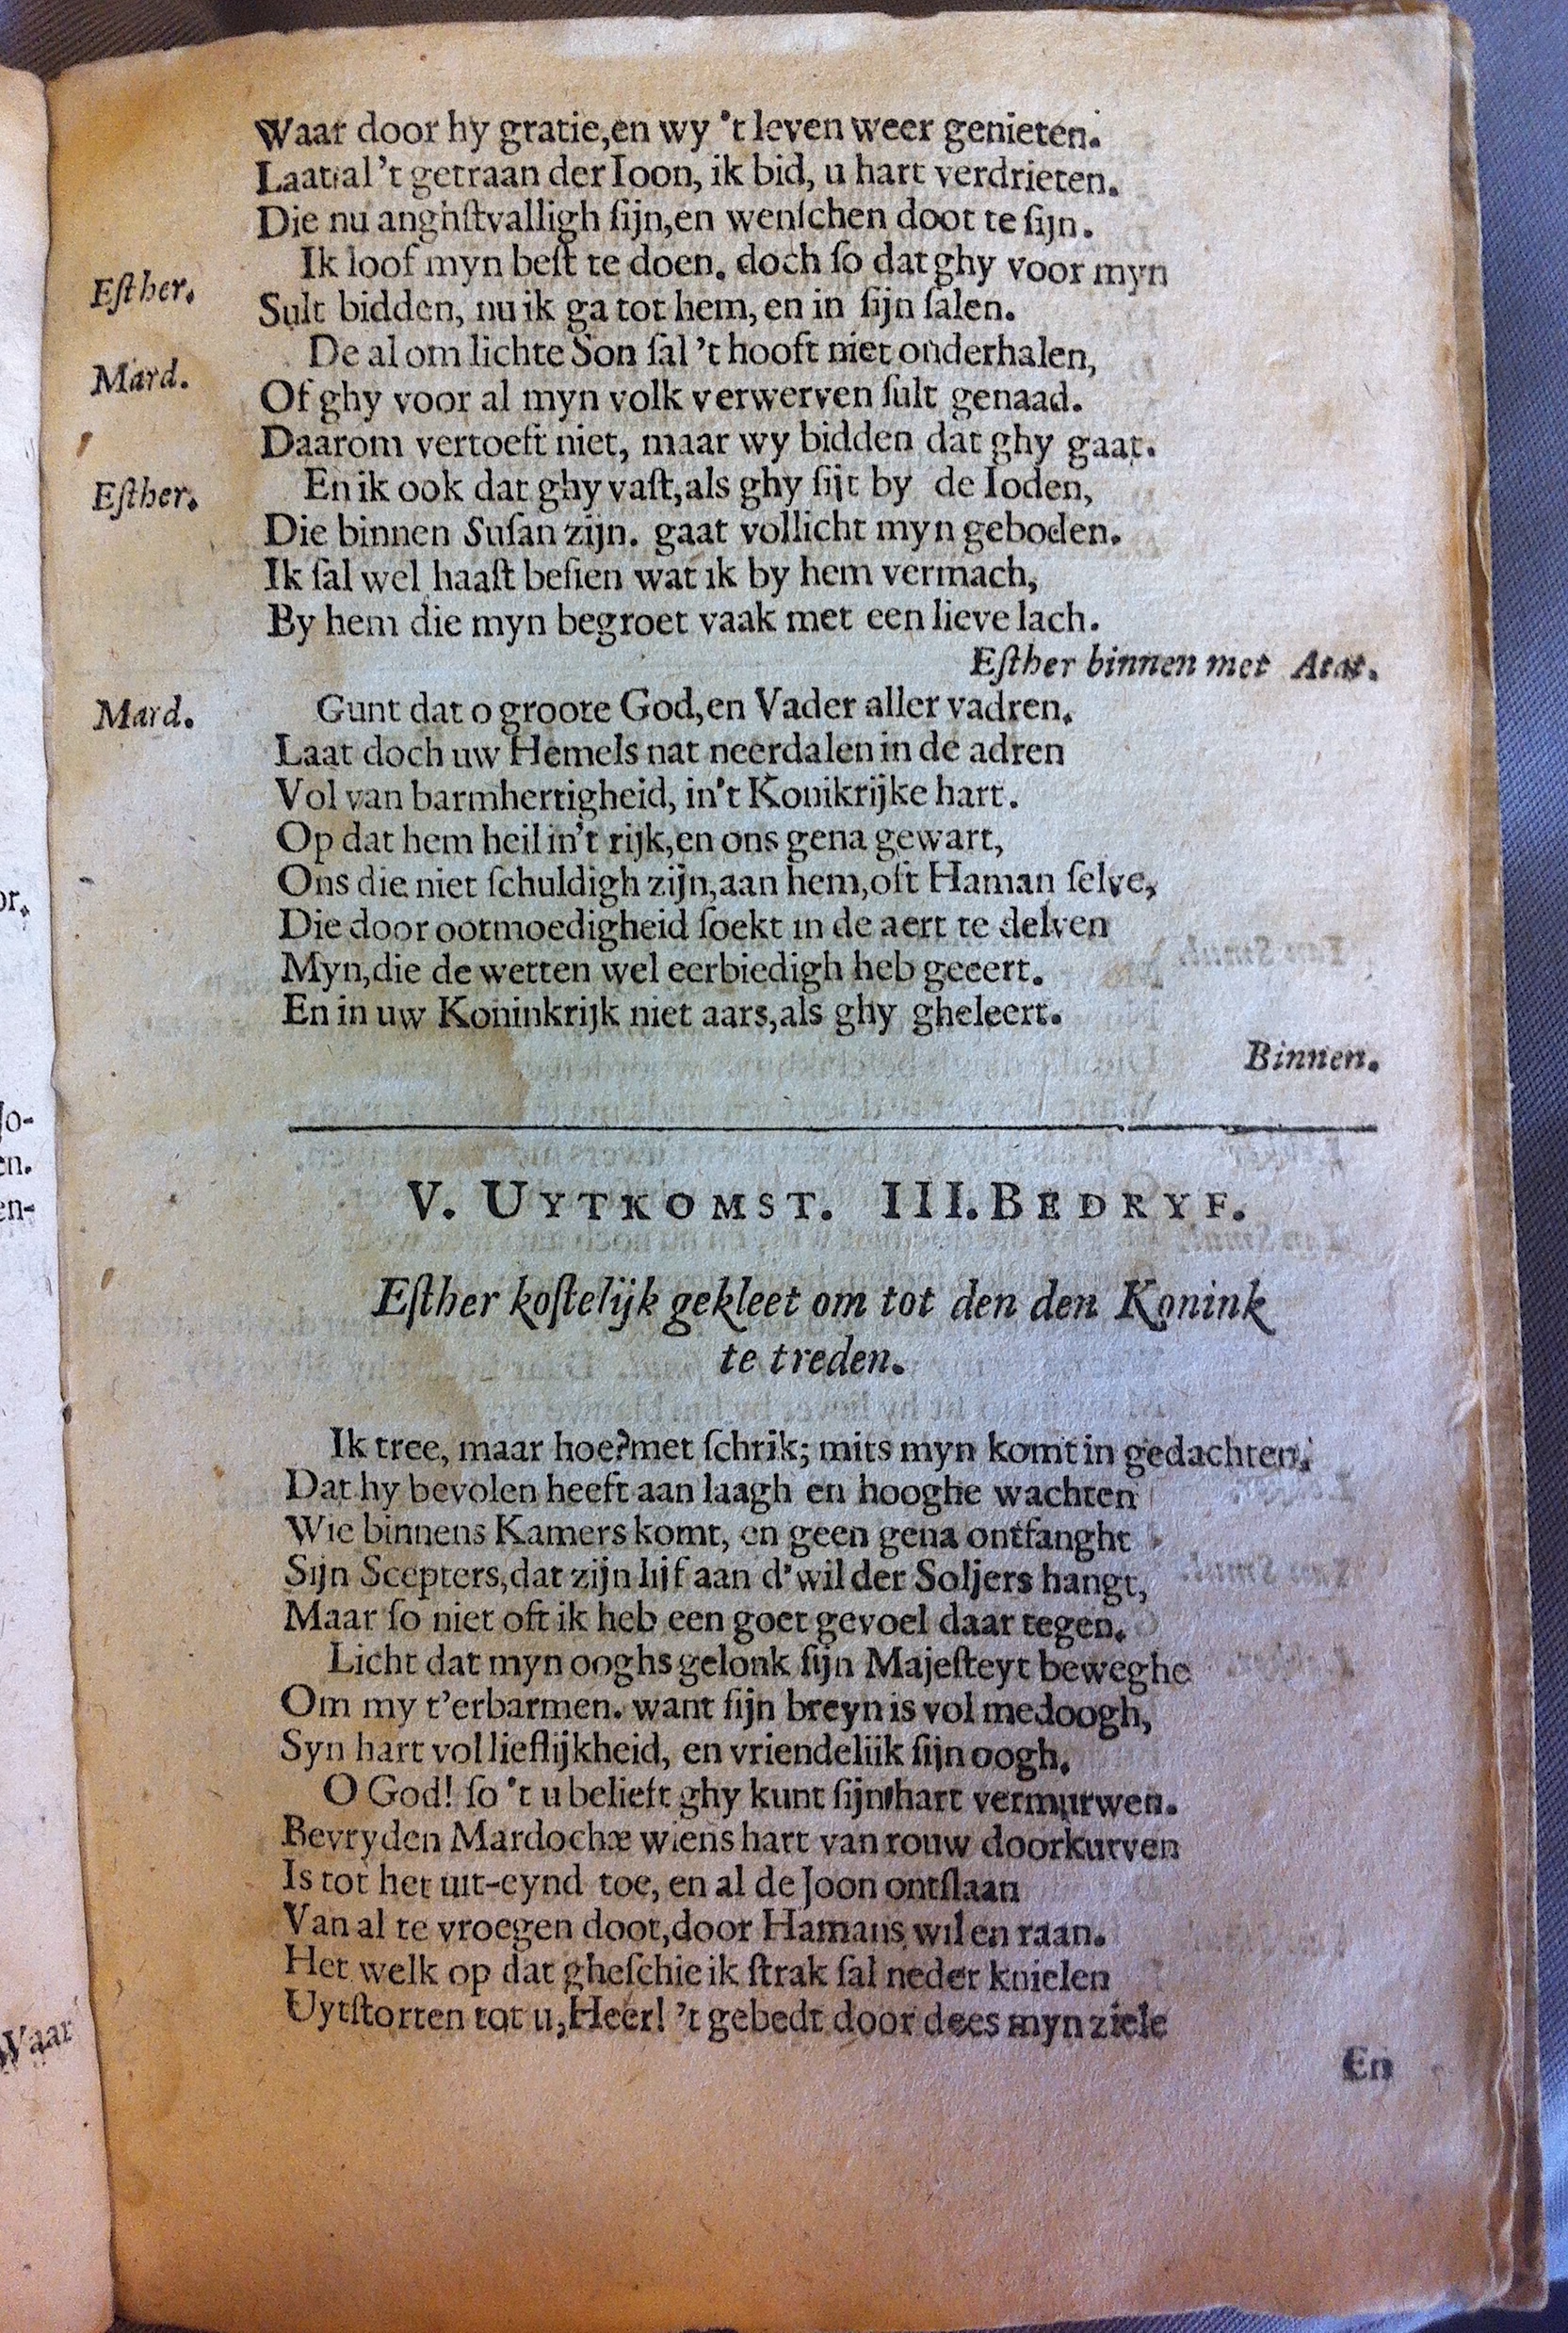 Waar door hy gratie,en wy 't leven weer genieten.
Laat al 't getraan der Ioon, ik bid, u hart verdrieten.
Die nu anghſtvalligh ſijn,en wenſchen doot te ſijn.
Eſther. Ik loof myn beſt te doen. doch ſo dat ghy voor myn
Sult bidden, nu ik ga tot hem, en in ſijn ſalen.
Mard. De al om lichte Son ſal 't hooft niet onderhalen,
Of ghy voor al myn volk verwerven ſult genaad.
Daarom vertoeft niet, maar wy bidden dat ghy gaat.
Eſther. En ik ook dat ghy vaſt,als ghy ſijt by de Ioden,
Die binnen Suſan zijn. gaat vollicht myn geboden.
Ik ſal wel haaſt beſien wat ik by hem vermach,
By hem die myn begroet vaak met een lieve lach.
Eſther binnen met Atat.
Mard. Gunt dat o groote God,en Vader aller vadren.
Laat doch uw Hemels nat neerdalen in de adren
Vol van barmhertigheid, in't Konikrijke hart.
Op dat hem heil in't rijk,en ons gena gewart,
Ons die niet ſchuldigh zijn,aan hem,oft Haman ſelve,
Die door ootmoedigheid ſoekt in de aert te delven
Myn,die de wetten wel eerbiedigh heb geeert.
En in uw Koninkrijk niet aars,als ghy gheleert.
Binnen.
V. UYTKOMST. III. BEDRYF.
Eſther koſtelijk gekleet om tot den den Konink
te treden.
Ik tree, maar hoe?met ſchrik; mits myn komt in gedachten.
Dat hy bevolen heeft aan laagh en hooghe wachten
Wie binnens Kamers komt, en geen gena ontfanght
Sijn Scepters,dat zijn lijf aan d'wil der Soljers hangt,
Maar ſo niet oft ik heb een goet gevoel daar tegen.
Licht dat myn ooghs gelonk ſijn Majeſteyt beweghe
Om my t'erbarmen. want ſijn breyn is vol medoogh,
Syn hart vol lieflijkheid, en vriendeliik ſijn oogh.
O God! ſo 't u belieft ghy kunt ſijn hart vermurwen.
Bevryden Mardochæ wiens hart van rouw doorkurven
Is tot het uit-eynd toe, en al de Joon ontſlaan
Van al te vroegen doot,door Hamans wil en raan.
Het welk op dat gheſchie ik ſtrak ſal neder knielen
Uytſtorten tot u,Heer! 't gebedt door dees myn ziele
En